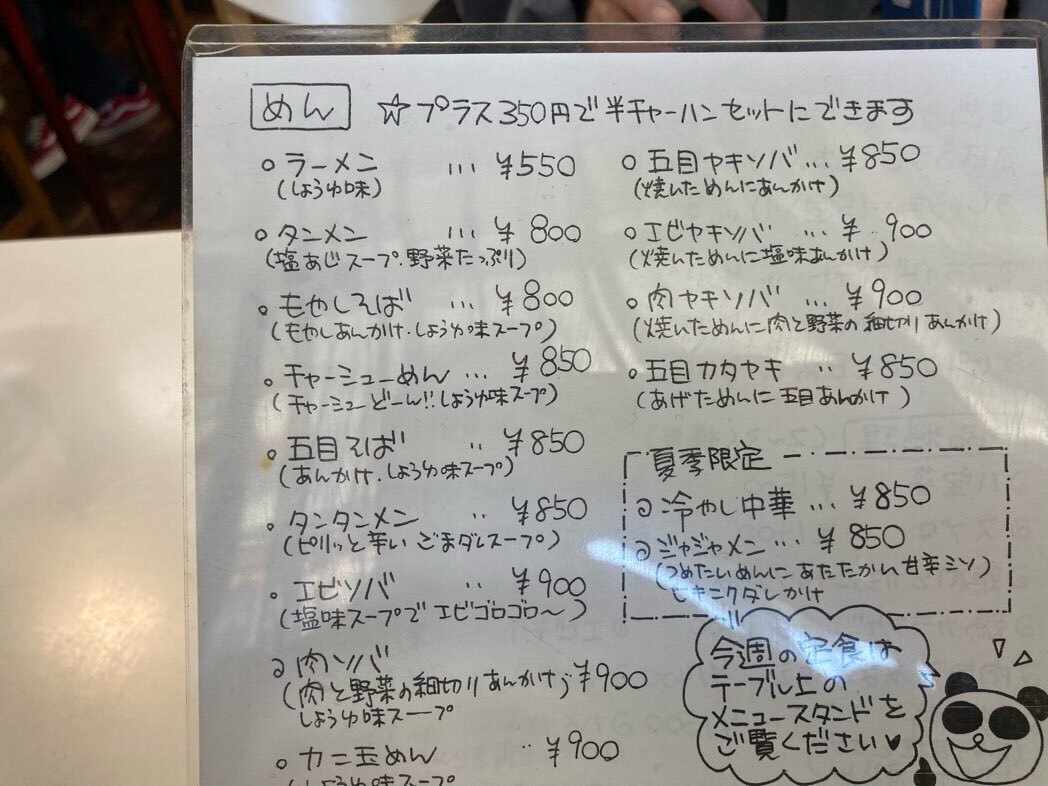 めん ☆プラス350円で半チャーハンセットにできます
○ラーメン … ¥550
(しょうゆ味)
○タンメン … ¥800
(塩あじスープ.野菜たっぷり)
○もやしそば … ¥800
(もやしあんかけ.しょうゆ味スープ)
○チャーシューめん … ¥850
(チャーシューどーん!!しょうゆ味スープ)
○五目そば ‥ ¥850
(あんかけ.しょうゆ味スープ)
○タンタンメン ‥ ¥850
(ピリッと辛いごまダレスープ)
○エビソバ ‥ ¥900
(塩味スープでエビゴロゴロ〜)
○肉ソバ
(肉と野菜の細切りあんかけ) ¥900
しょうゆ味スープ
○カニ玉めん ‥ ¥900
(しょうゆ味スープ
○五目ヤキソバ … ¥850
(焼いためんにあんかけ)
○エビヤキソバ … ¥900
(焼いためんに塩味あんかけ)
○肉ヤキソバ … ¥900
(焼いためんに肉と野菜の細切りあんかけ)
○五目カタヤキ ‥ ¥850
(あげためんに五目あんかけ)
夏季限定
○冷やし中華 … ¥850
○ジャジャメン … ¥850
(つめたいめんにあたたかい甘辛ミソ)
ヒキニクダレかけ
今週の定食は
テーブル上の
メニュースタンドを
ご覧ください♥